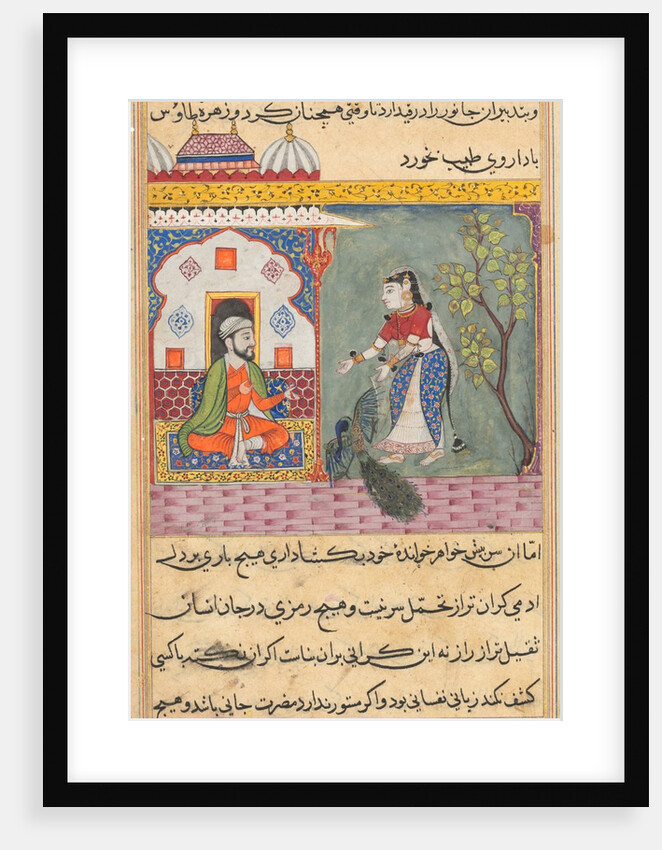 و بتدبیران جانور را در قید ارد تا وقتی همچنان کرد و زهرهٔ طاوس
با داروی طبیب نخورد
اما ان سر پیش خواهر خواندهٔ خود بکشاد اری هیچ باری بر دل
ادمی کران تر از تحمل سر نیست و هیچ رمزی در جان انسان
ثقیل تر از راز نه این کرانی بران بناست اکر ان نکته با کسی
کشف نکند زیانی نفسانی بود و اکر مستور ندارد مضرت جانی باشد و هیچ